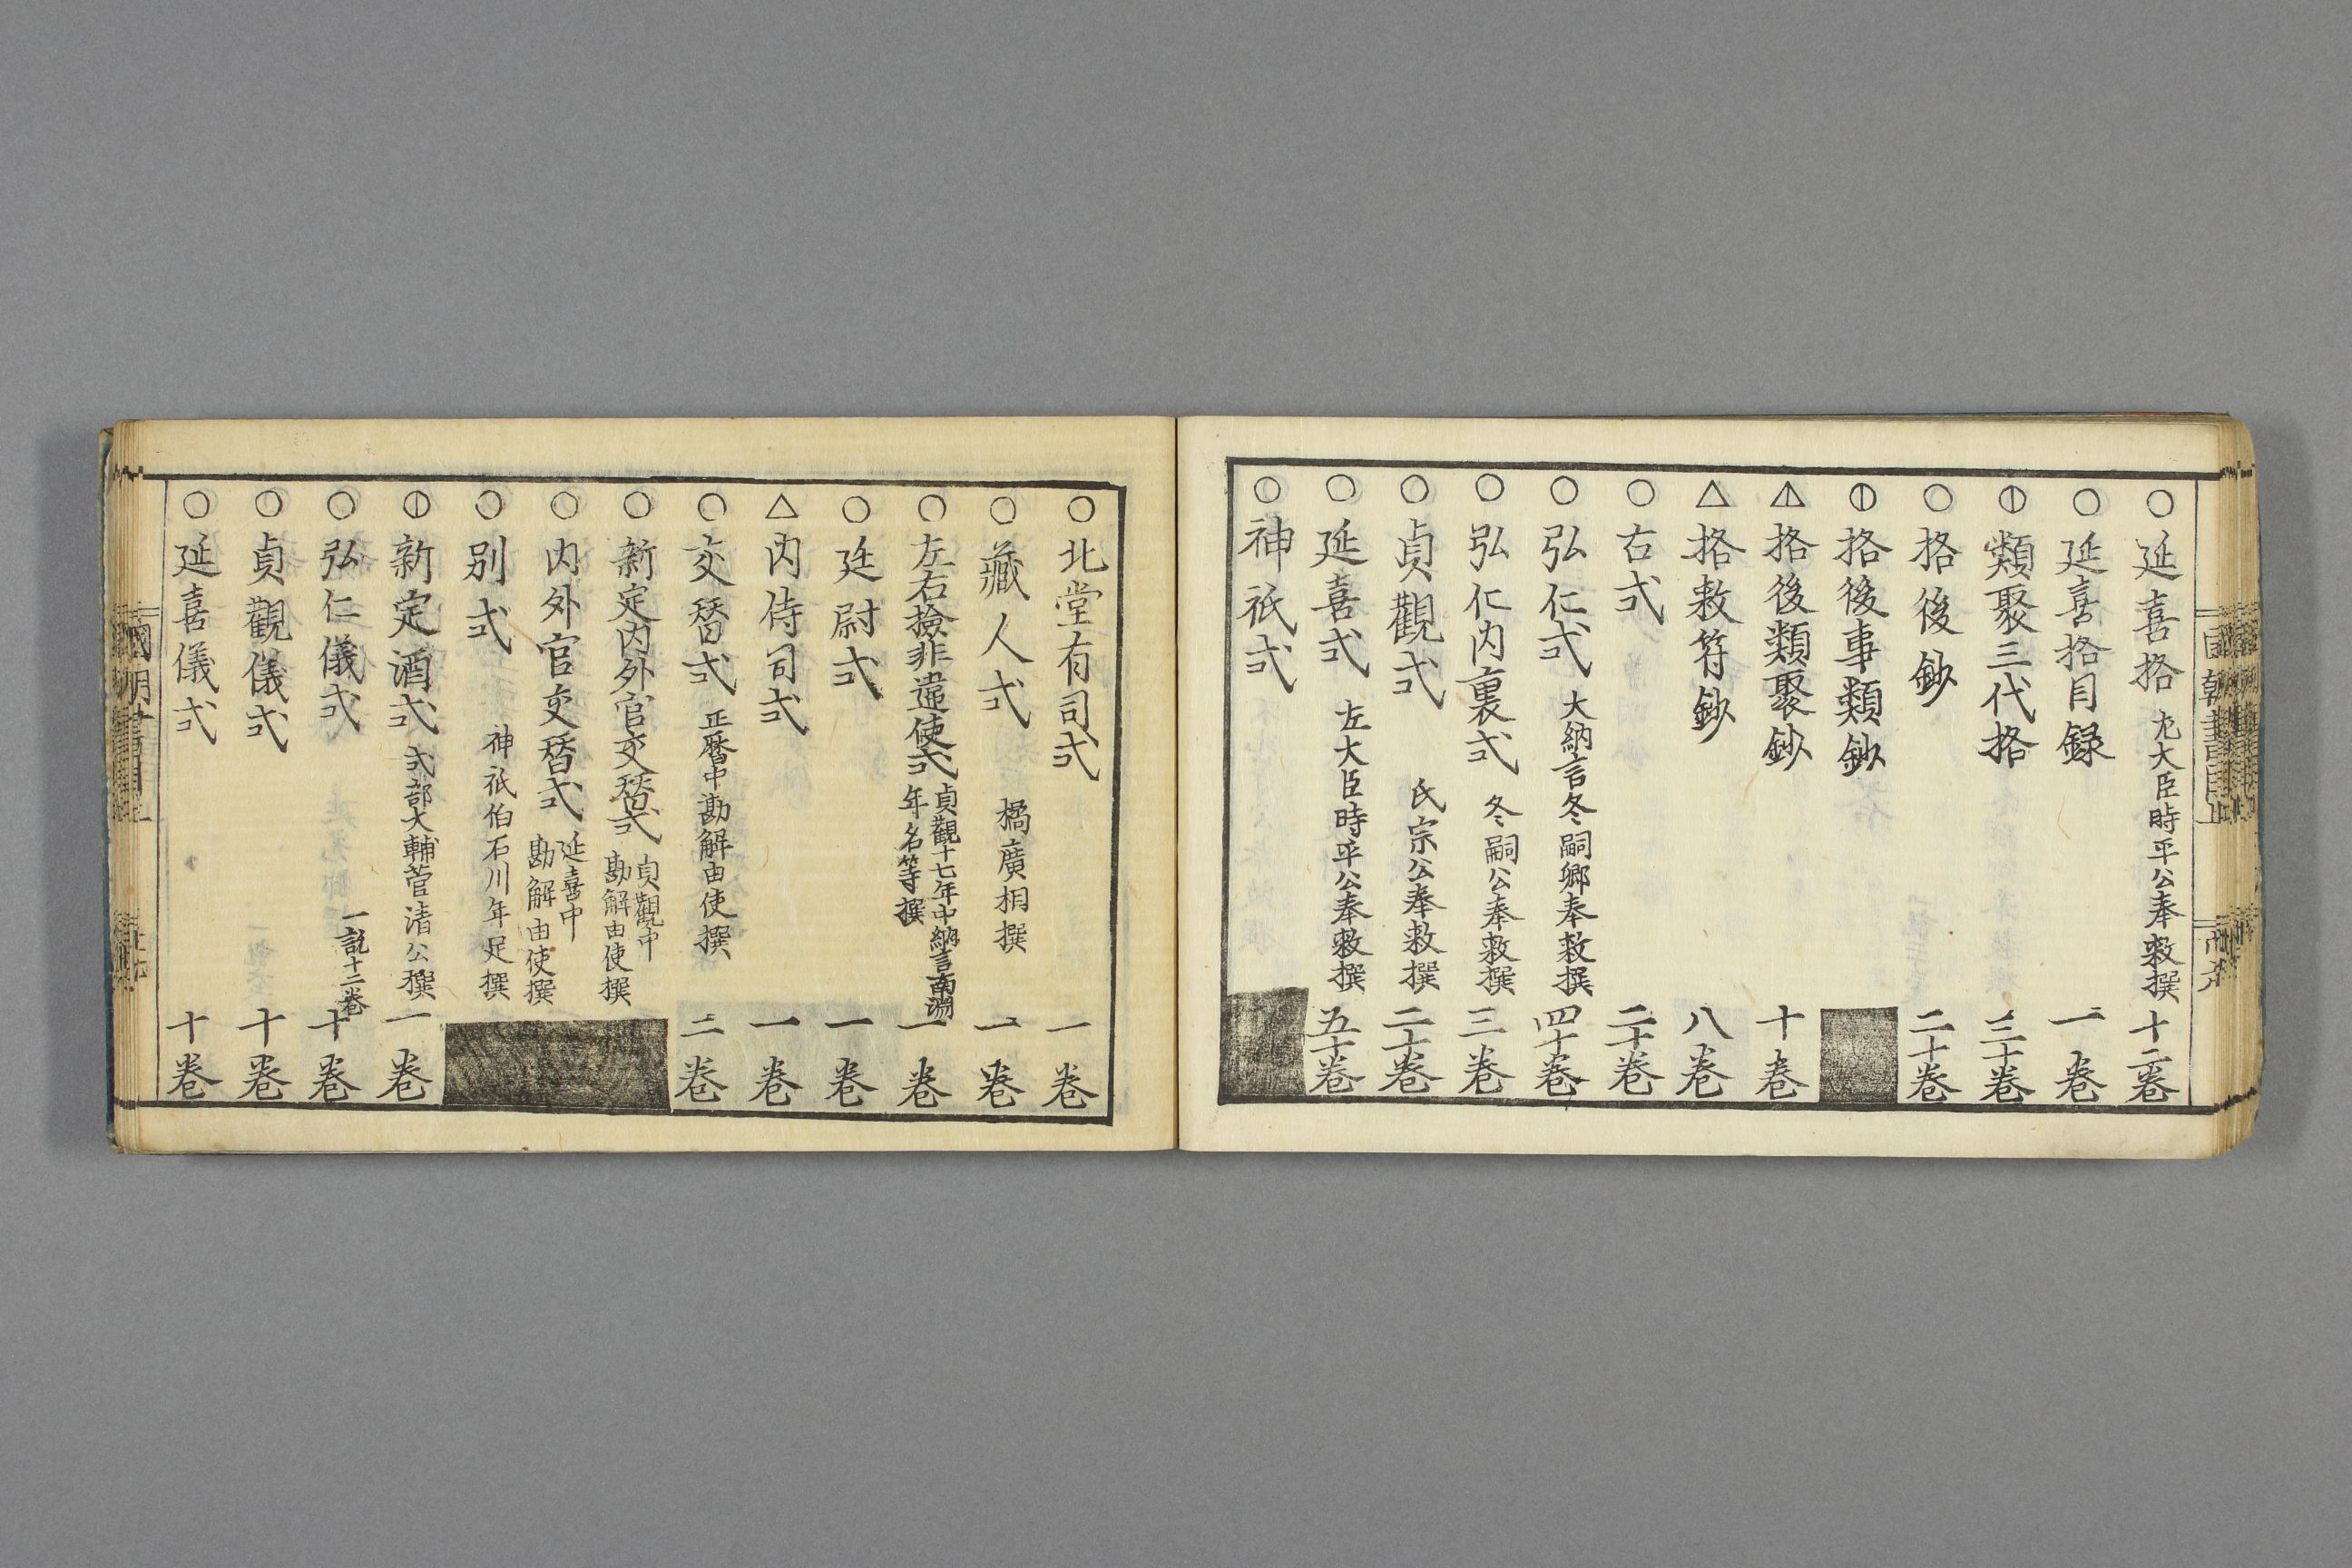 ○延喜格 左大臣時平公奉敕撰 十二卷
○延喜格目録 一卷
⦶類聚三代格 三十卷
○格後鈔 二十卷
⦶格後事類鈔
◬格後類聚鈔 十卷
△格敕符鈔 八卷
○右式 二十卷
○弘仁式 大納言冬嗣卿奉敕撰 四十卷
○弘仁内裏式 冬嗣公奉敕撰 三卷
○貞觀式 氏宗公奉敕撰 二十卷
○延喜式 左大臣時平公奉敕撰 五十卷
○神祇式
○北堂有司式 一卷
○藏人式 橘廣相撰 一卷
○左右撿非違使式 貞觀十七年中納言南淵
年名等撰 一卷
○廷尉式 一卷
△内侍司式 一卷
○交替式 正曆中勘解由使撰 二卷
○新定内外官交替式 貞觀中
勘解由使撰
○内外官交替式 延喜中
勘解由使撰
○別式 神祇伯石川年足撰
⦶新定酒式 式部大輔菅清公撰 一卷
○弘仁儀式 一説十二卷 十卷
○貞觀儀式 十卷
○延喜儀式 十卷